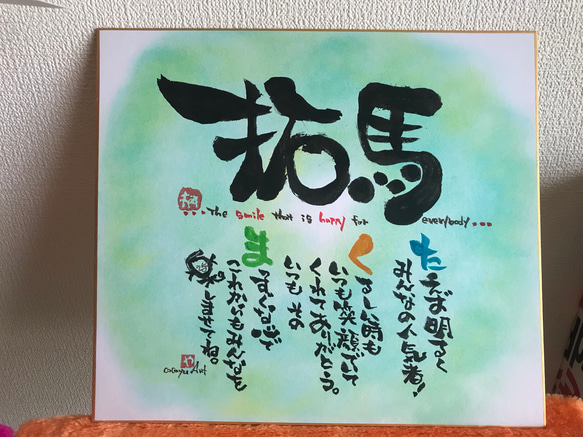 拓馬
...The smile that is happy for everybody...
たえず明るく
みんなの人気者!
くるしい時も
いつも笑顔でいて
くれてありがとう。
いつもその
まっすぐな心で
これからもみんなを
しませてね。